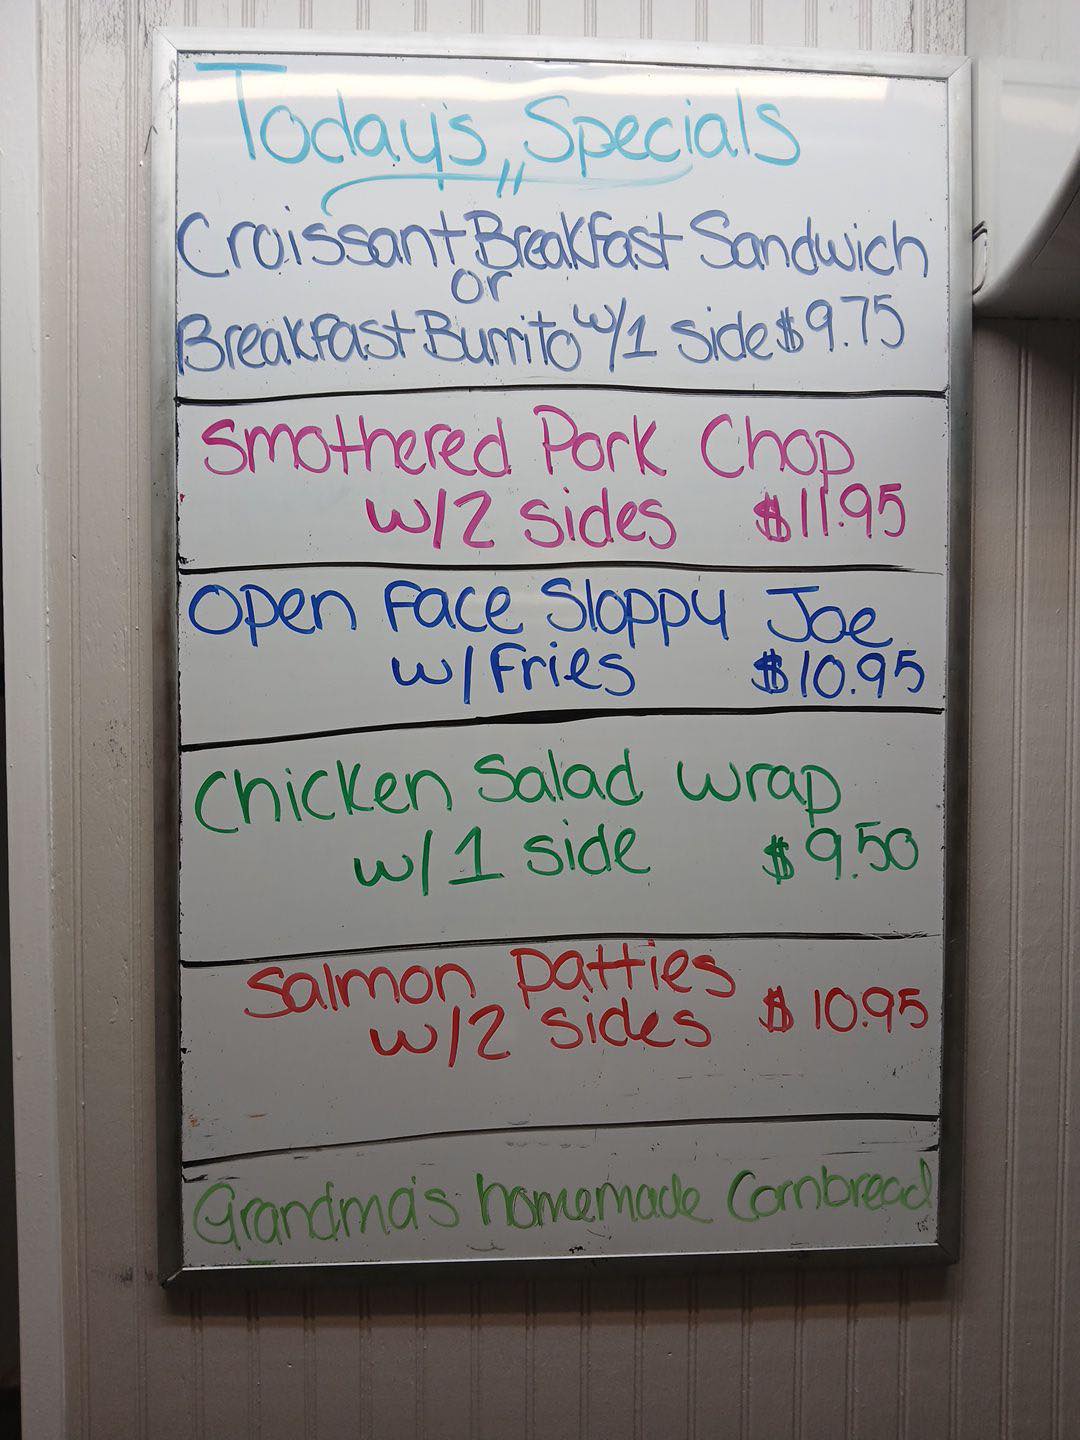 Today's Specials
Croissant Breakfast Sandwich
or
Breakfast Burrito w/1 side $9.75
Smothered Pork Chop
w/2 sides $11.95
Open Face Sloppy Joe
w/Fries $10.95
Chicken Salad Wrap
w/1 side $9.50
Salmon Patties
w/2 sides $10.95
Grandma's homemade Cornbread